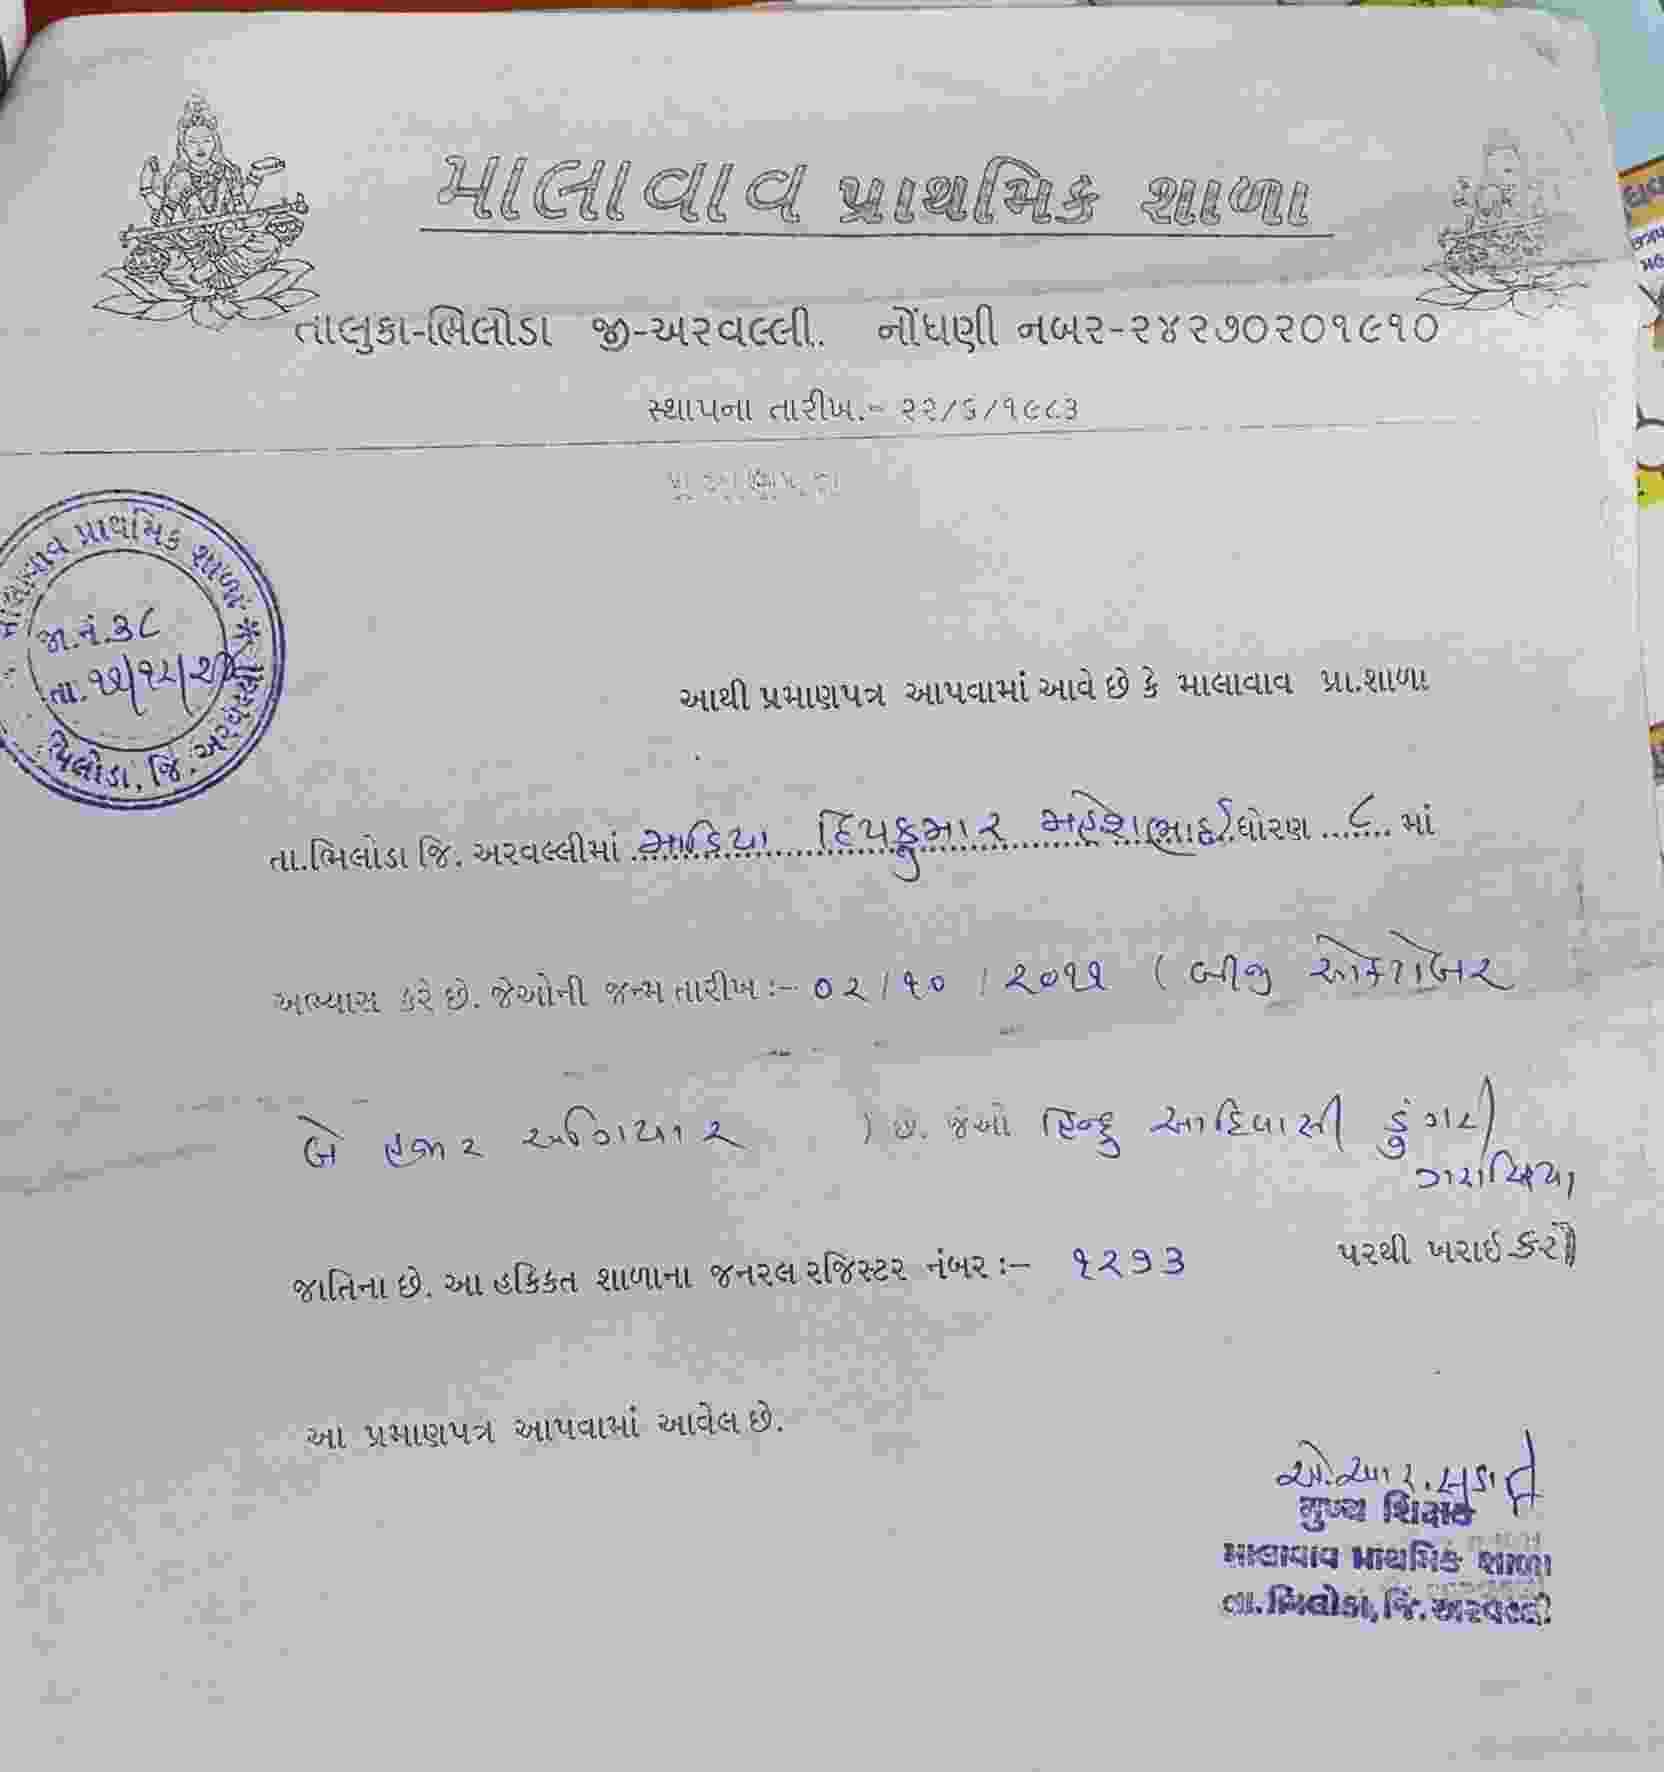 માલાવાવ પ્રાથમિક શાળા
તાલુકા-ભિલોડા જી-અરવલ્લી. નોંધણી નબર-૨૪૨૭૦૨૦૧૯૧૦
સ્થાપના તારીખ.- ૨૨/૬/૧૯૮૩
માલાવાવ પ્રાથમિક શાળા *
જા.નં.૩૮
ભિલોડા, જિ. અરવલ્લી
આથી પ્રમાણપત્ર આપવામાં આવે છે કે માલાવાવ પ્રા.શાળા
તા.ભિલોડા જિ. અરવલ્લીમાં માડિયા દિપકુમાર મહેશભાઈ ધોરણ ...૮... માં
અભ્યાસ કરે છે. જેઓની જન્મ તારીખ :- ૦૨/૧૦/૨૦૧૧ ( બીજી ઓક્ટોબર
બે હજાર અગિયાર ) છે. જેઓ હિન્દુ આદિવાસી ડુંગરી
ગરાસિયા
જાતિના છે. આ હકિકત શાળાના જનરલ રજિસ્ટર નંબર :- ૧૨૭૩ પરથી ખરાઈ કરી
આ પ્રમાણપત્ર આપવામાં આવેલ છે.
એ.આર.
મુખ્ય શિક્ષક
માલાવાવ પ્રાથમિક શાળા
તા.ભિલોડા, જિ.અરવલ્લી